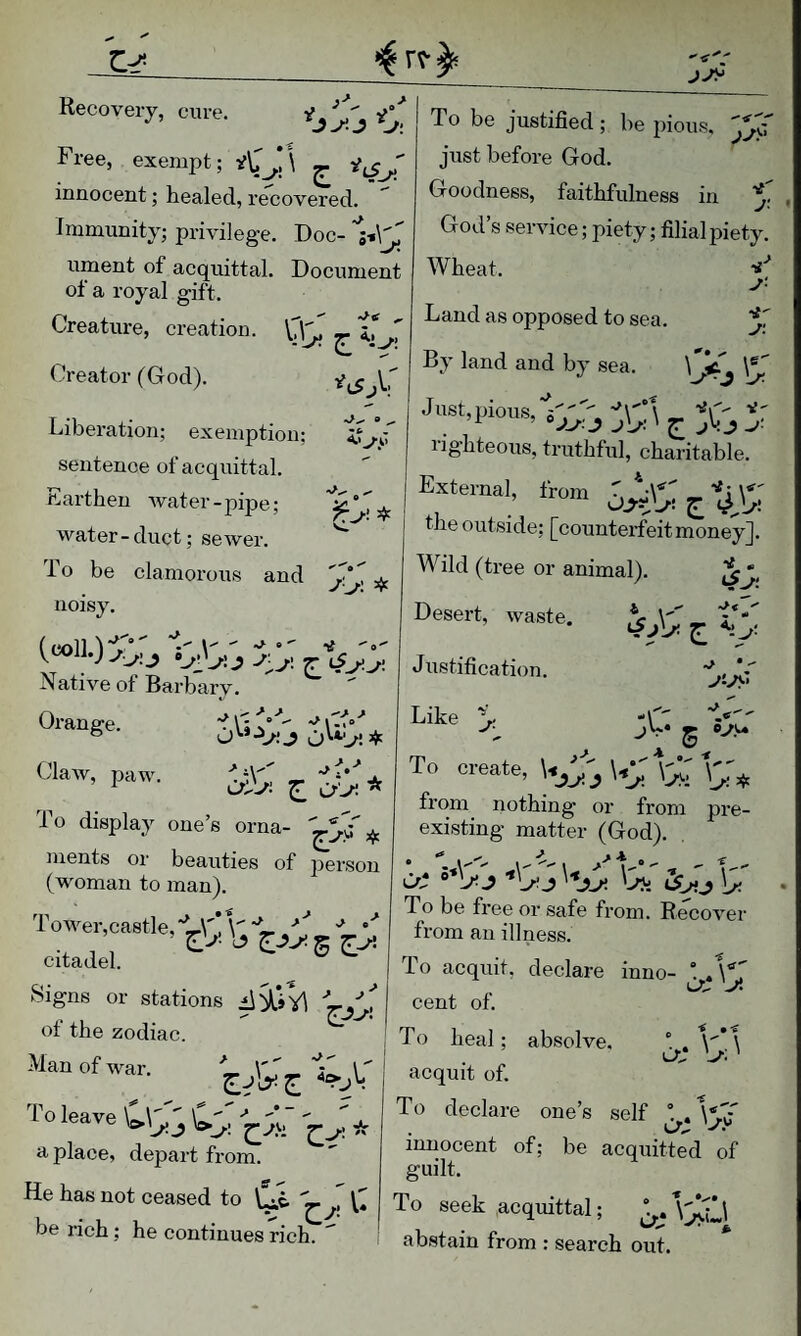 برح
برر
To be justified; be pious, تَبَرَّرَ
just before God.
Goodness, faithfulness in بِرٌّ
God's service; piety; filial piety.
Wheat. بُرٌّ
Land as opposed to sea. بَرٌّ
By land and by sea. بَرًّا وَبَحْرًا
Just, pious, بَرٌّ وَبَارٌّ ج أَبْرَارٌ وَبَرَرَةٌ
righteous, truthful, charitable.
External, from بَرَّانِيٌّ ج بَرَّانِيُّونَ
the outside; [counterfeit money].
Wild (tree or animal). بَرِّيٌّ
Desert, waste. بَرِّيَّةٌ ج بَرَارِيُّ
Justification. تَبْرِيرٌ
Like بَرٌّ مَبَرَّةٌ ج مَبَارُّ
To create, ☆ بَرَأَ يَبْرَأُ بَرْءًا وَبُرُوءًا
from nothing or from pre-
existing matter (God).
بَرَأَ وَبَرِئَ يَبْرَأُ بُرُوءًا وَبُرْءًا وَبَرَاءَةً مِنْ
To be free or safe from. Recover
from an illness.
To acquit, declare inno- بَرَّأَ مِنْ
cent of.
To heal; absolve, أَبْرَأَ مِنْ
acquit of.
To declare one's self تَبَرَّأَ مِنْ
innocent of; be acquitted of
guilt.
To seek acquittal; إِسْتَبْرَأَ مِنْ
abstain from: search out.
Recovery, cure. بُرْءٌ وَبُرُوءٌ
Free, exempt; بَرِيءٌ ج أَبْرِيَاءُ
innocent; healed, recovered.
Immunity; privilege. Doc- بَرَاءَةٌ
ument of acquittal. Document
of a royal gift.
Creature, creation. بَرِيَّةٌ ج بَرَايَا
Creator (God). بَارِئٌ
Liberation; exemption; تَبْرِئَةٌ
sentence of acquittal.
Earthen water-pipe; ☆ بَرْبَخٌ
water-duct; sewer.
To be clamorous and ☆ بَرْبَرَ
noisy.
بَرْبَرِيٌّ ج بَرْبَرٌ وَبَرَابِرَةٌ وَبَرَابِرُ (coll.)
Native of Barbary.
Orange. ☆ بُرْتُقَالٌ وَبُرْتُقَانٌ
Claw, paw. ☆ بُرْثُنٌ ج بَرَاثِنُ
To display one's orna- ☆ تَبَرَّجَ
ments or beauties of person
(woman to man).
Tower, castle, بُرْجٌ ج بُرُوجٌ وَأَبْرَاجٌ
citadel.
Signs or stations بُرُوجُ الأَفْلَاكِ
of the zodiac.
Man of war. بَارِجَةٌ ج بَوَارِجُ
To leave ☆ بَرِحَ يَبْرَحُ بَرَحًا وَبَرَاحًا
a place, depart from.
He has not ceased to مَا بَرِحَ غَنِيًّا
be rich; he continues rich.